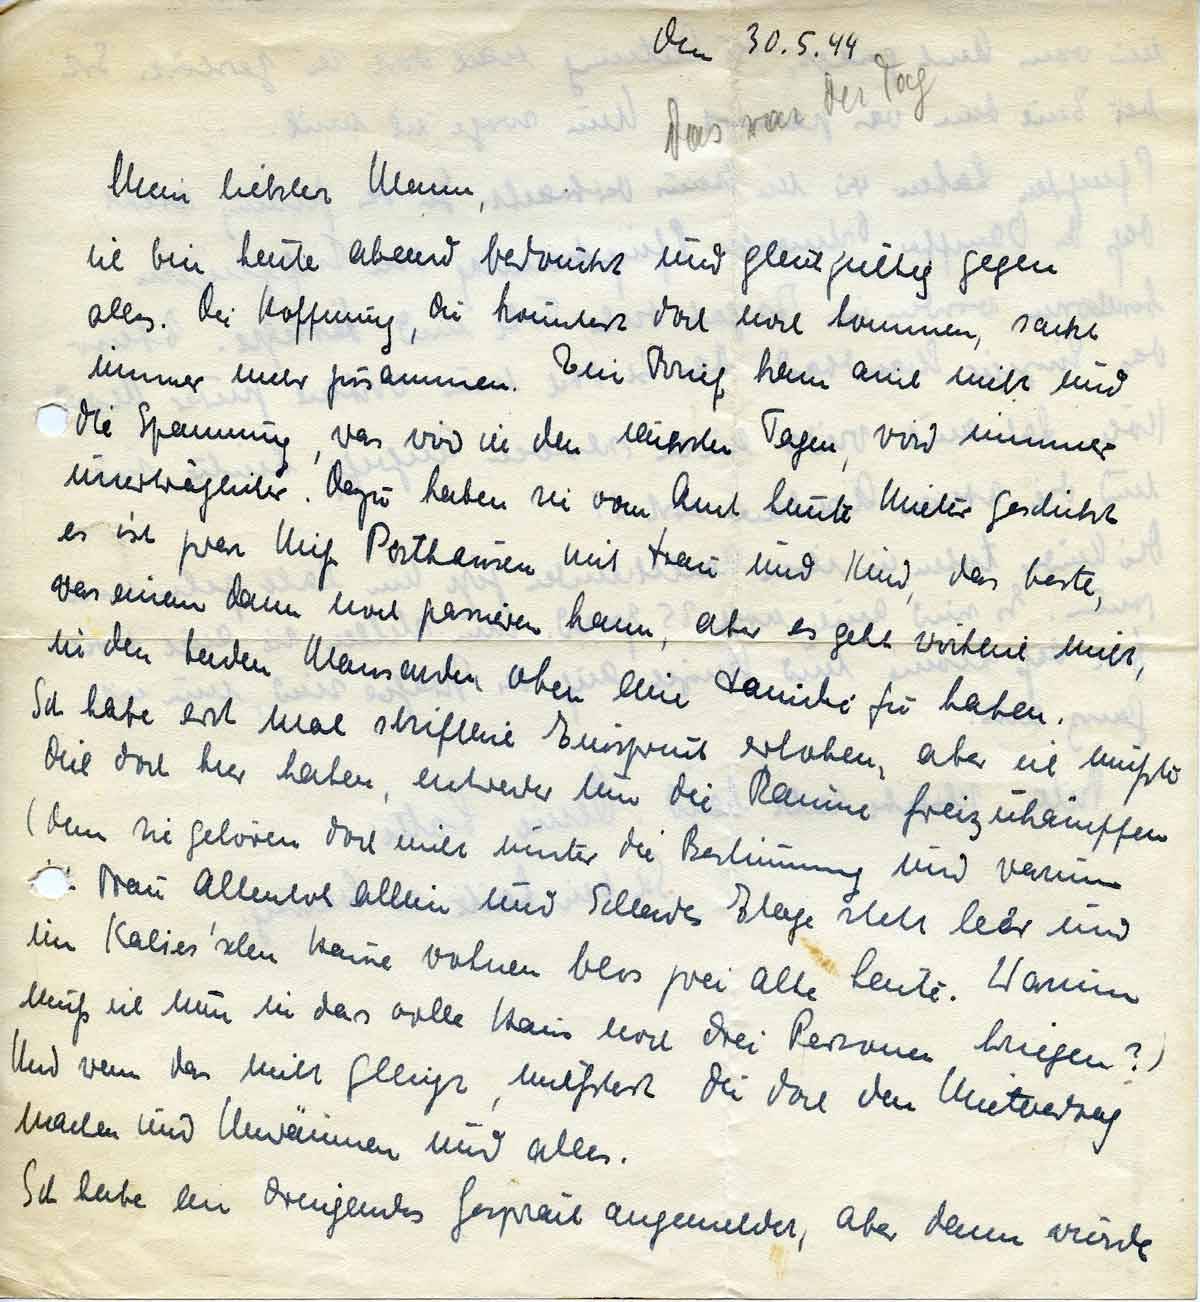 den 30.5.44
Das war der Tag
Mein liebster Mann,
ich bin heute abend bedrückt und gleichgültig gegen
alles. Die Hoffnung, Du könntest doch noch kommen, sackt
immer mehr zusammen. Ein Brief kam auch nicht und
die Spannung, was wird in den nächsten Tagen, wird immer
unerträglicher. Dazu haben sie vom Amt heute Mieter geschickt
es ist zwar Posthausen mit Frau und Kind, das beste,
was einem dann noch passieren kann, aber es geht wirklich nicht,
in den beiden Mansarden oben eine Familie zu haben.
Ich habe erst mal schriftlich Einspruch erhoben, aber ich müßte
Dich doch hier haben, entweder um die Räume freizukämpfen
(denn sie gehören doch nicht unter die Bestimmung und warum
Frau allein und Etage steht leer und
im Hause wohnen blos zwei alte Leute. Warum
muß ich nun in das volle Haus noch drei Personen kriegen?)
Und wenn das nicht glingt, müßtest Du doch den Mietvertrag
machen und Umräumen und alles.
Ich habe ein dringendes Gespräch angemeldet, aber dann würde